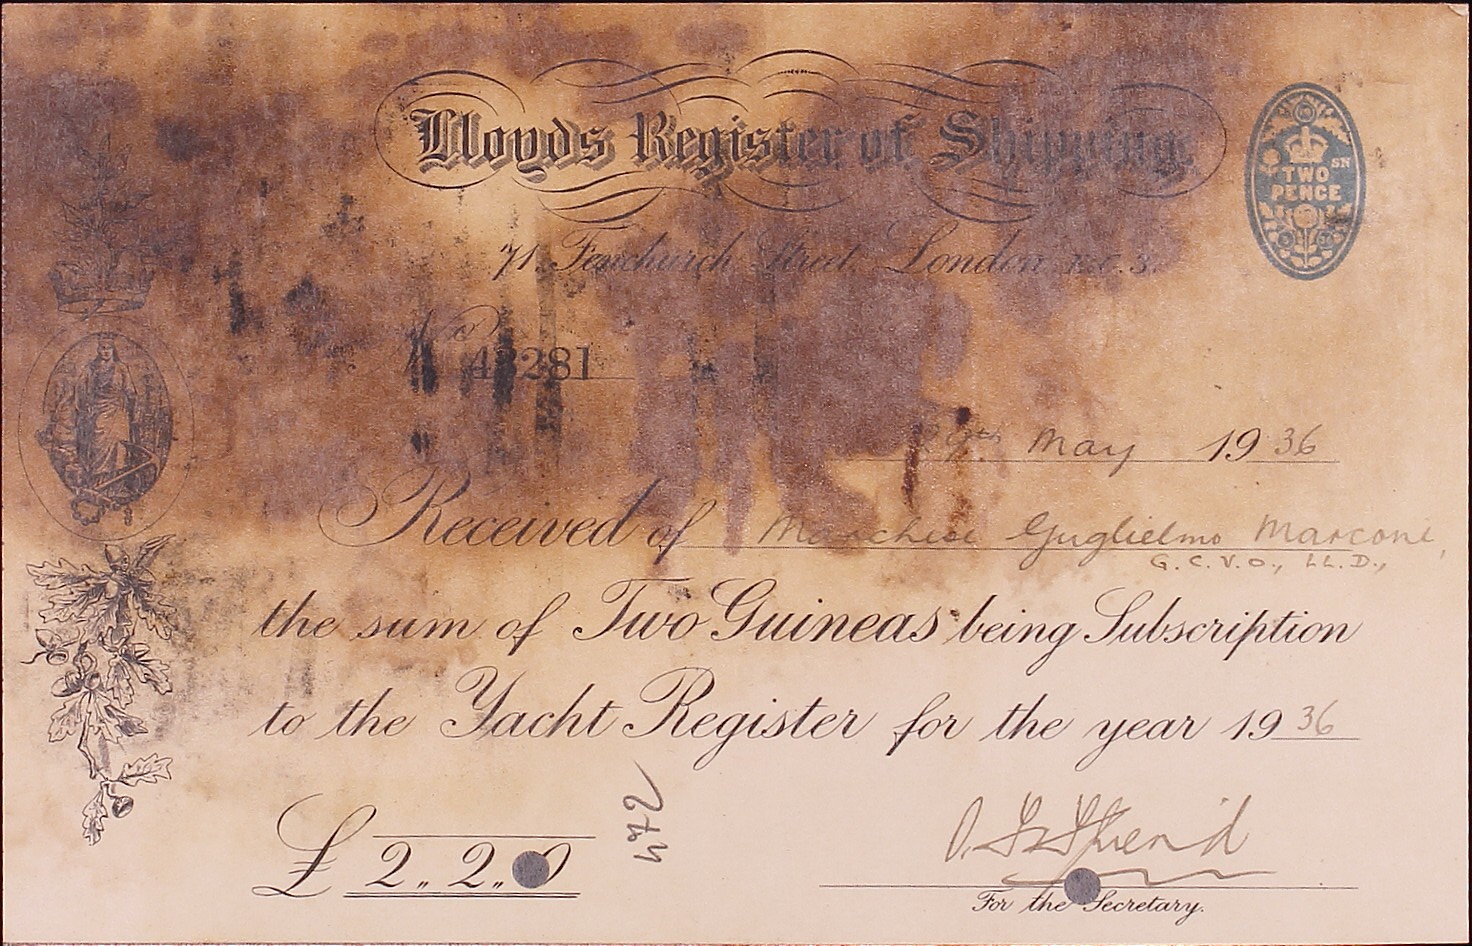 Lloyd's Register of Shipping
SN
TWO
PENCE
71, Fenchurch Street, London, E.C.3.
No
48281
29th May 1936
Received of Marchese Guglielmo Marconi,
G.C.V.O., LL.D.,
the sum of Two Guineas being Subscription
to the Yacht Register for the year 1936
£ 2.. 2.. 0
For the Secretary.